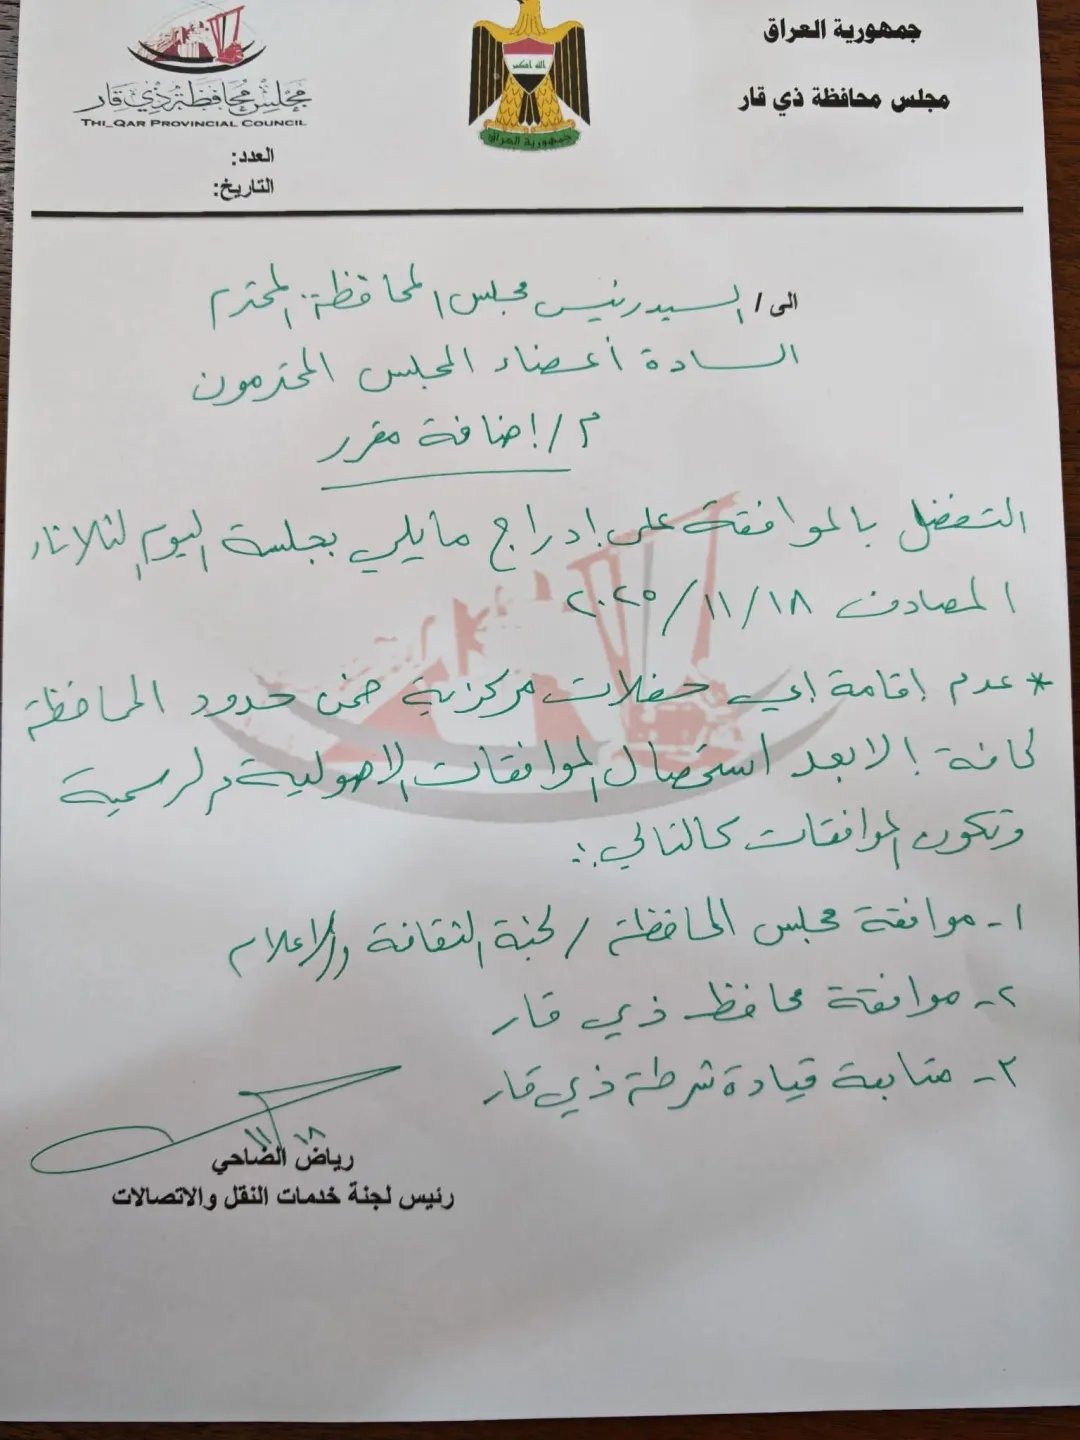 جمهورية العراق
مجلس محافظة ذي قار
الله اكبر
جمهورية العراق
مجلس محافظة ذي قار
THI_QAR PROVINCIAL COUNCIL
العدد:
التاريخ:
الى / السيد رئيس مجلس المحافظة المحترم
السادة أعضاء المجلس المحترمون
م / إضافة مقرر
التفضل بالموافقة على إدراج مايلي بجلسة اليوم الثلاثاء
المصادف ١٨/ ١١/ ٢٠٢٥
* عدم إقامة إي حفلات مركزية ضمن حدود المحافظة
كافة إلا بعد استحصال الموافقات الاصولية والرسمية
وتكون الموافقات كالتالي :
١- موافقة مجلس المحافظة / لجنة الثقافة والاعلام
٢- موافقة محافظ ذي قار
٣- متابعة قيادة شرطة ذي قار
١٨ ١١
رياض الضاحي
رئيس لجنة خدمات النقل والاتصالات